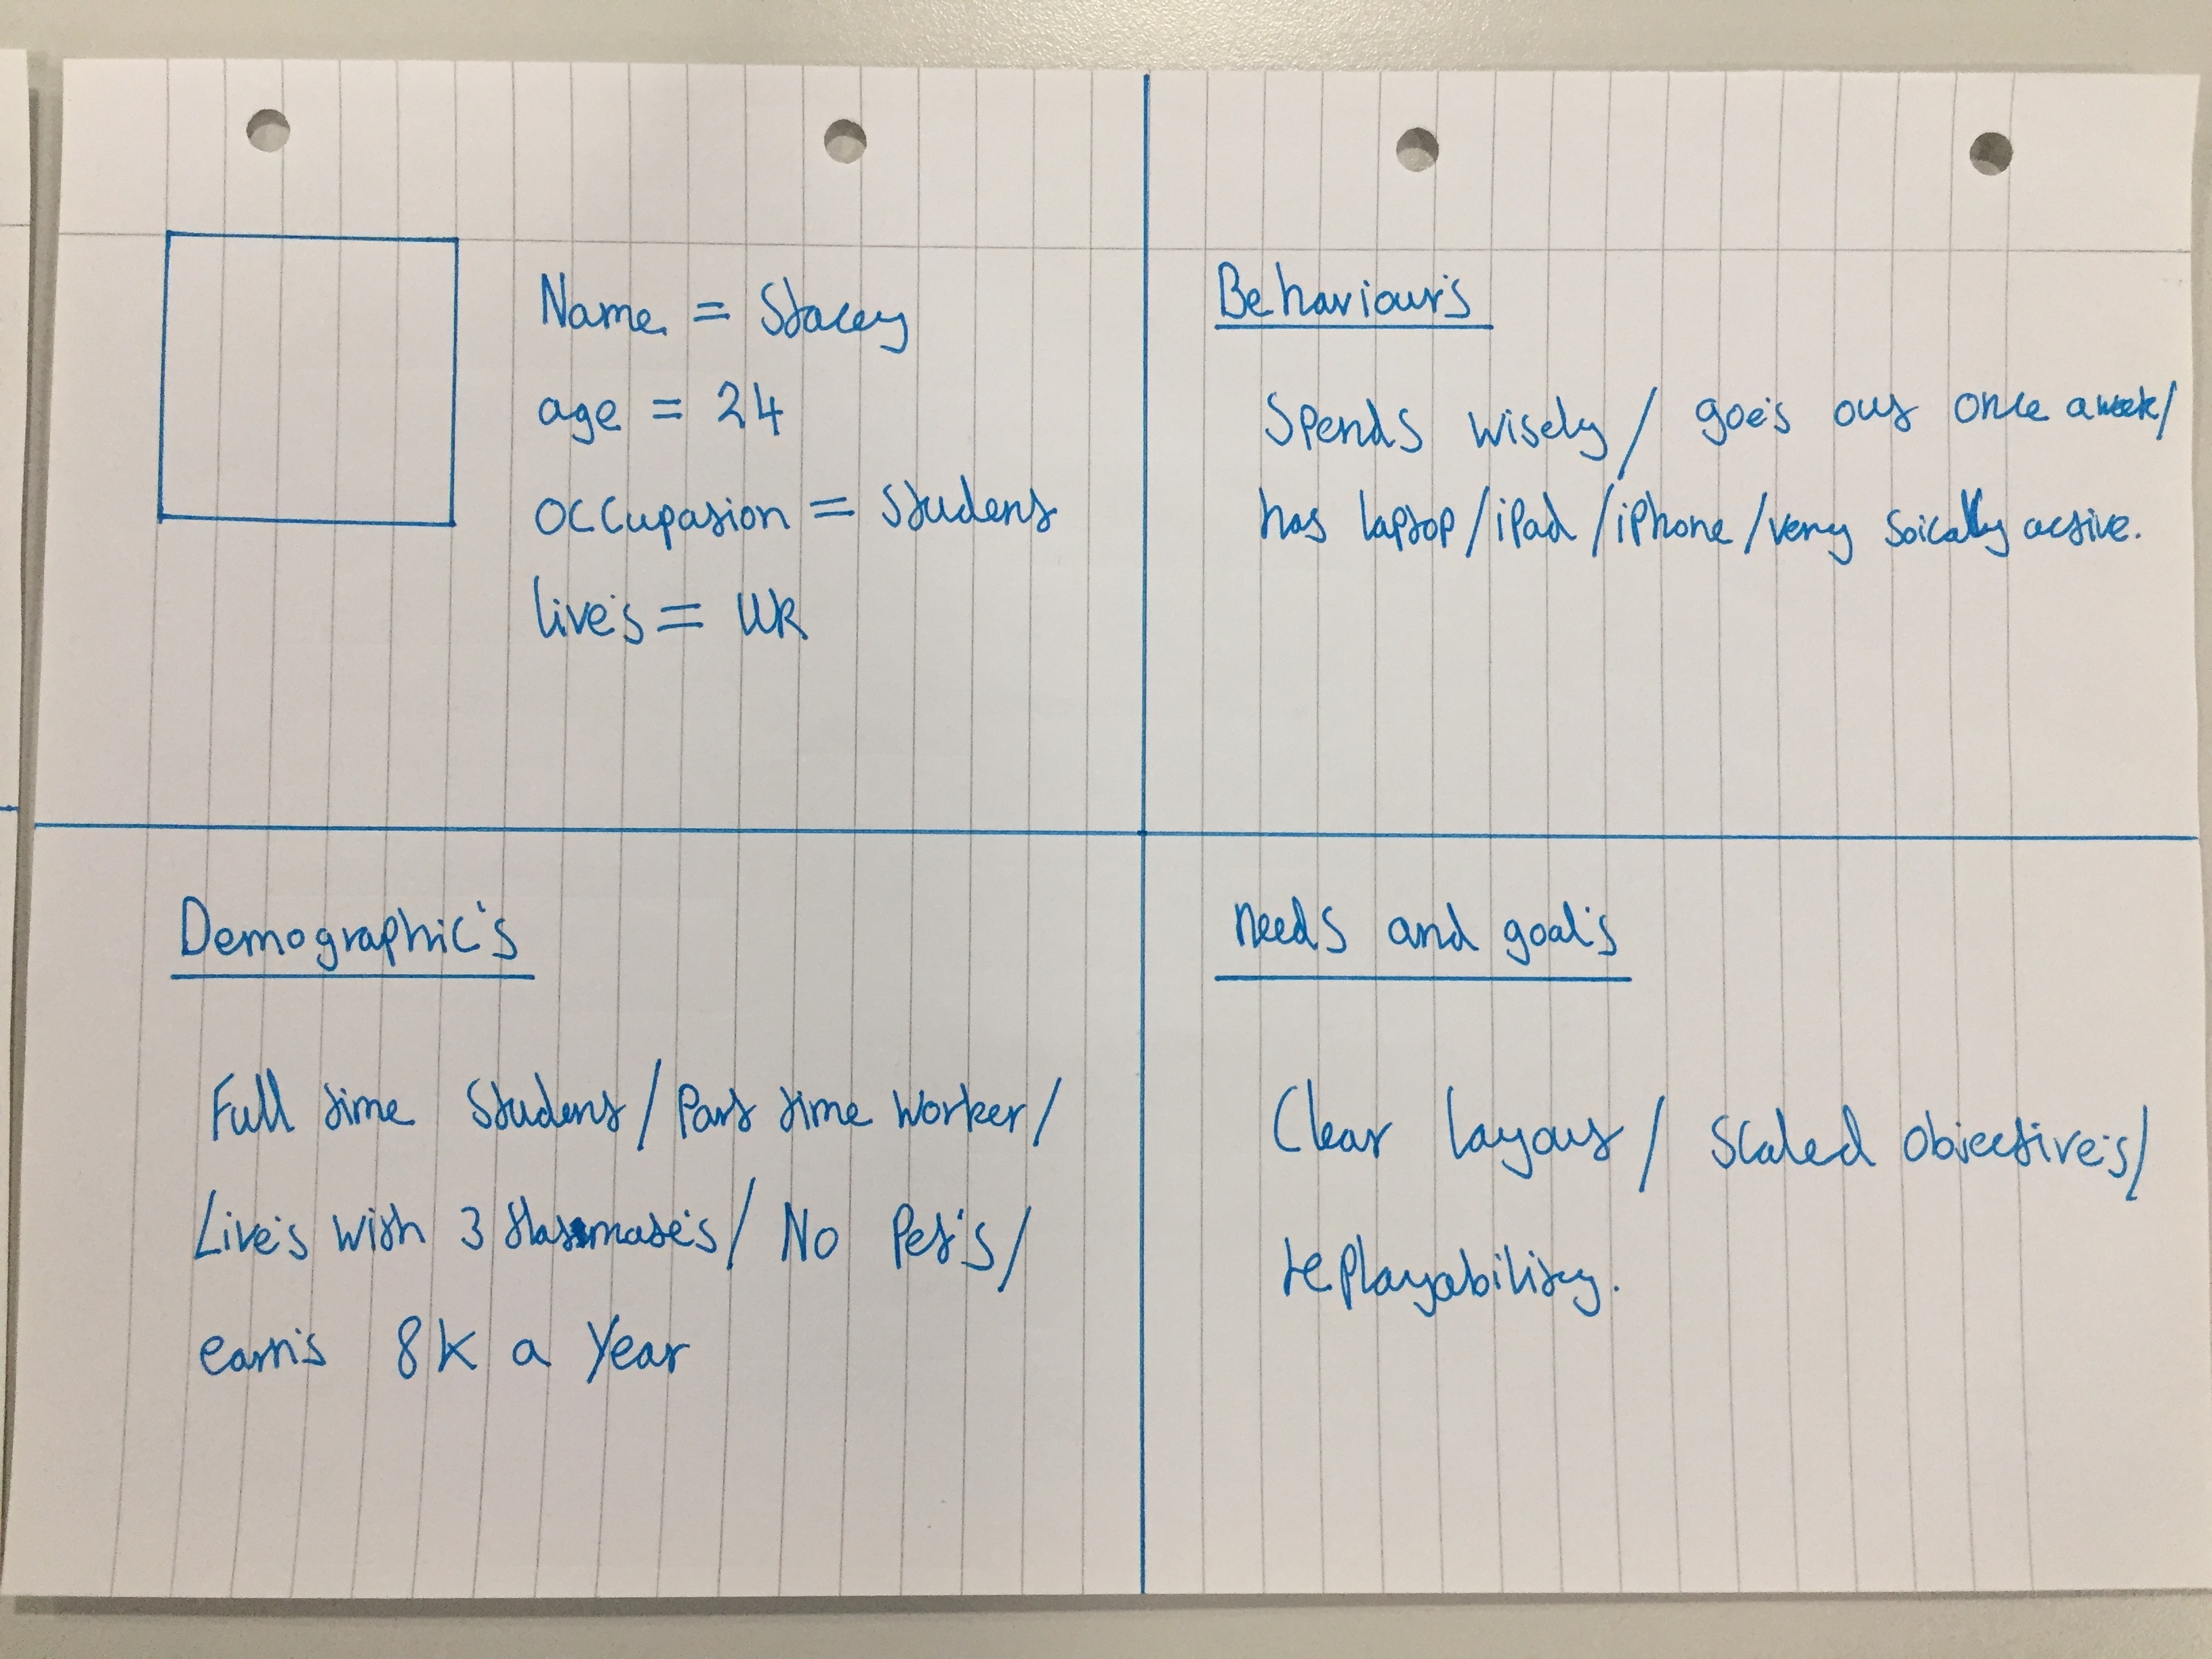 Name = Stacey
age = 24
occupation = Student
live's = UK
Behaviour's
Spends wisely / goe's out once a week/
has laptop/iPad/iPhone/very soically active.
Demographic's
Full time Student/Part time worker/
Live's with 3 flatmate's/ No Pet's/
earn's 8K a Year
needs and goal's
Clear layout/ Scaled objective's/
replayability.